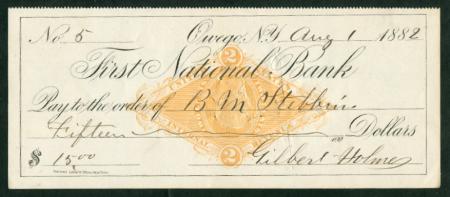 No 5 Owego, N.Y. Aug 1 1882
First National Bank
Pay to the order of B M Stebbins
Fifteen 00/100 Dollars
$ 15.00 Gilbert Holmes
2
2